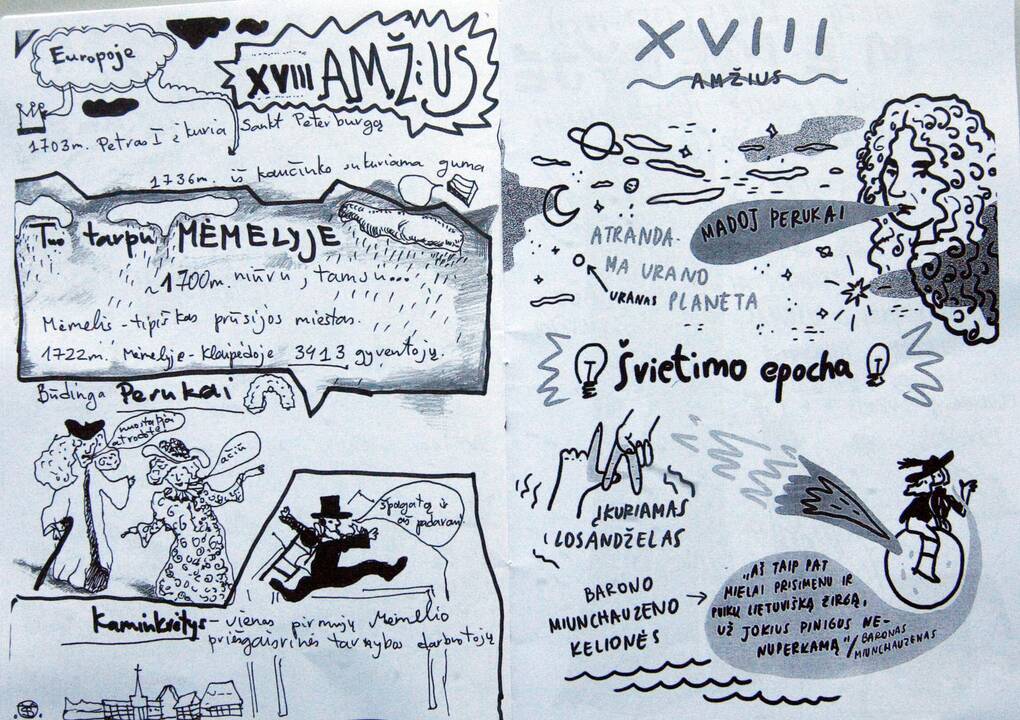 Europoje
XVIII AMŽIUS
1703m. Petras I įkuria Sankt Peterburgą
1736m. iš kaučiuko sukuriama guma
Tuo tarpu MĖMELYJE
~1700m. niūru, tamsu...
Mėmelis - tipiškas prūsijos miestas.
1722m. Mėmelyje-Klaipėdoje 3413 gyventojų.
Būdinga Perukai
nuostabiai
atrodote!
ačiū
Špagatą ir
aš padarau!
Kaminkrėtys - vienas pirmųjų Mėmelio
priešgaisrinės tarnybos darbuotojų
XVIII
AMŽIUS
MADOJ PERUKAI
ATRANDA-
MA URANO
PLANETA
URANAS
Švietimo epocha
LA
ĮKURIAMAS
LOSANDŽELAS
BARONO
MIUNCHAUZENO
KELIONĖS
„AŠ TAIP PAT
MIELAI PRISIMENU IR
PUIKŲ LIETUVIŠKĄ ŽIRGĄ,
UŽ JOKIUS PINIGUS NE-
NUPERKAMĄ"/BARONAS
MIUNCHAUZENAS